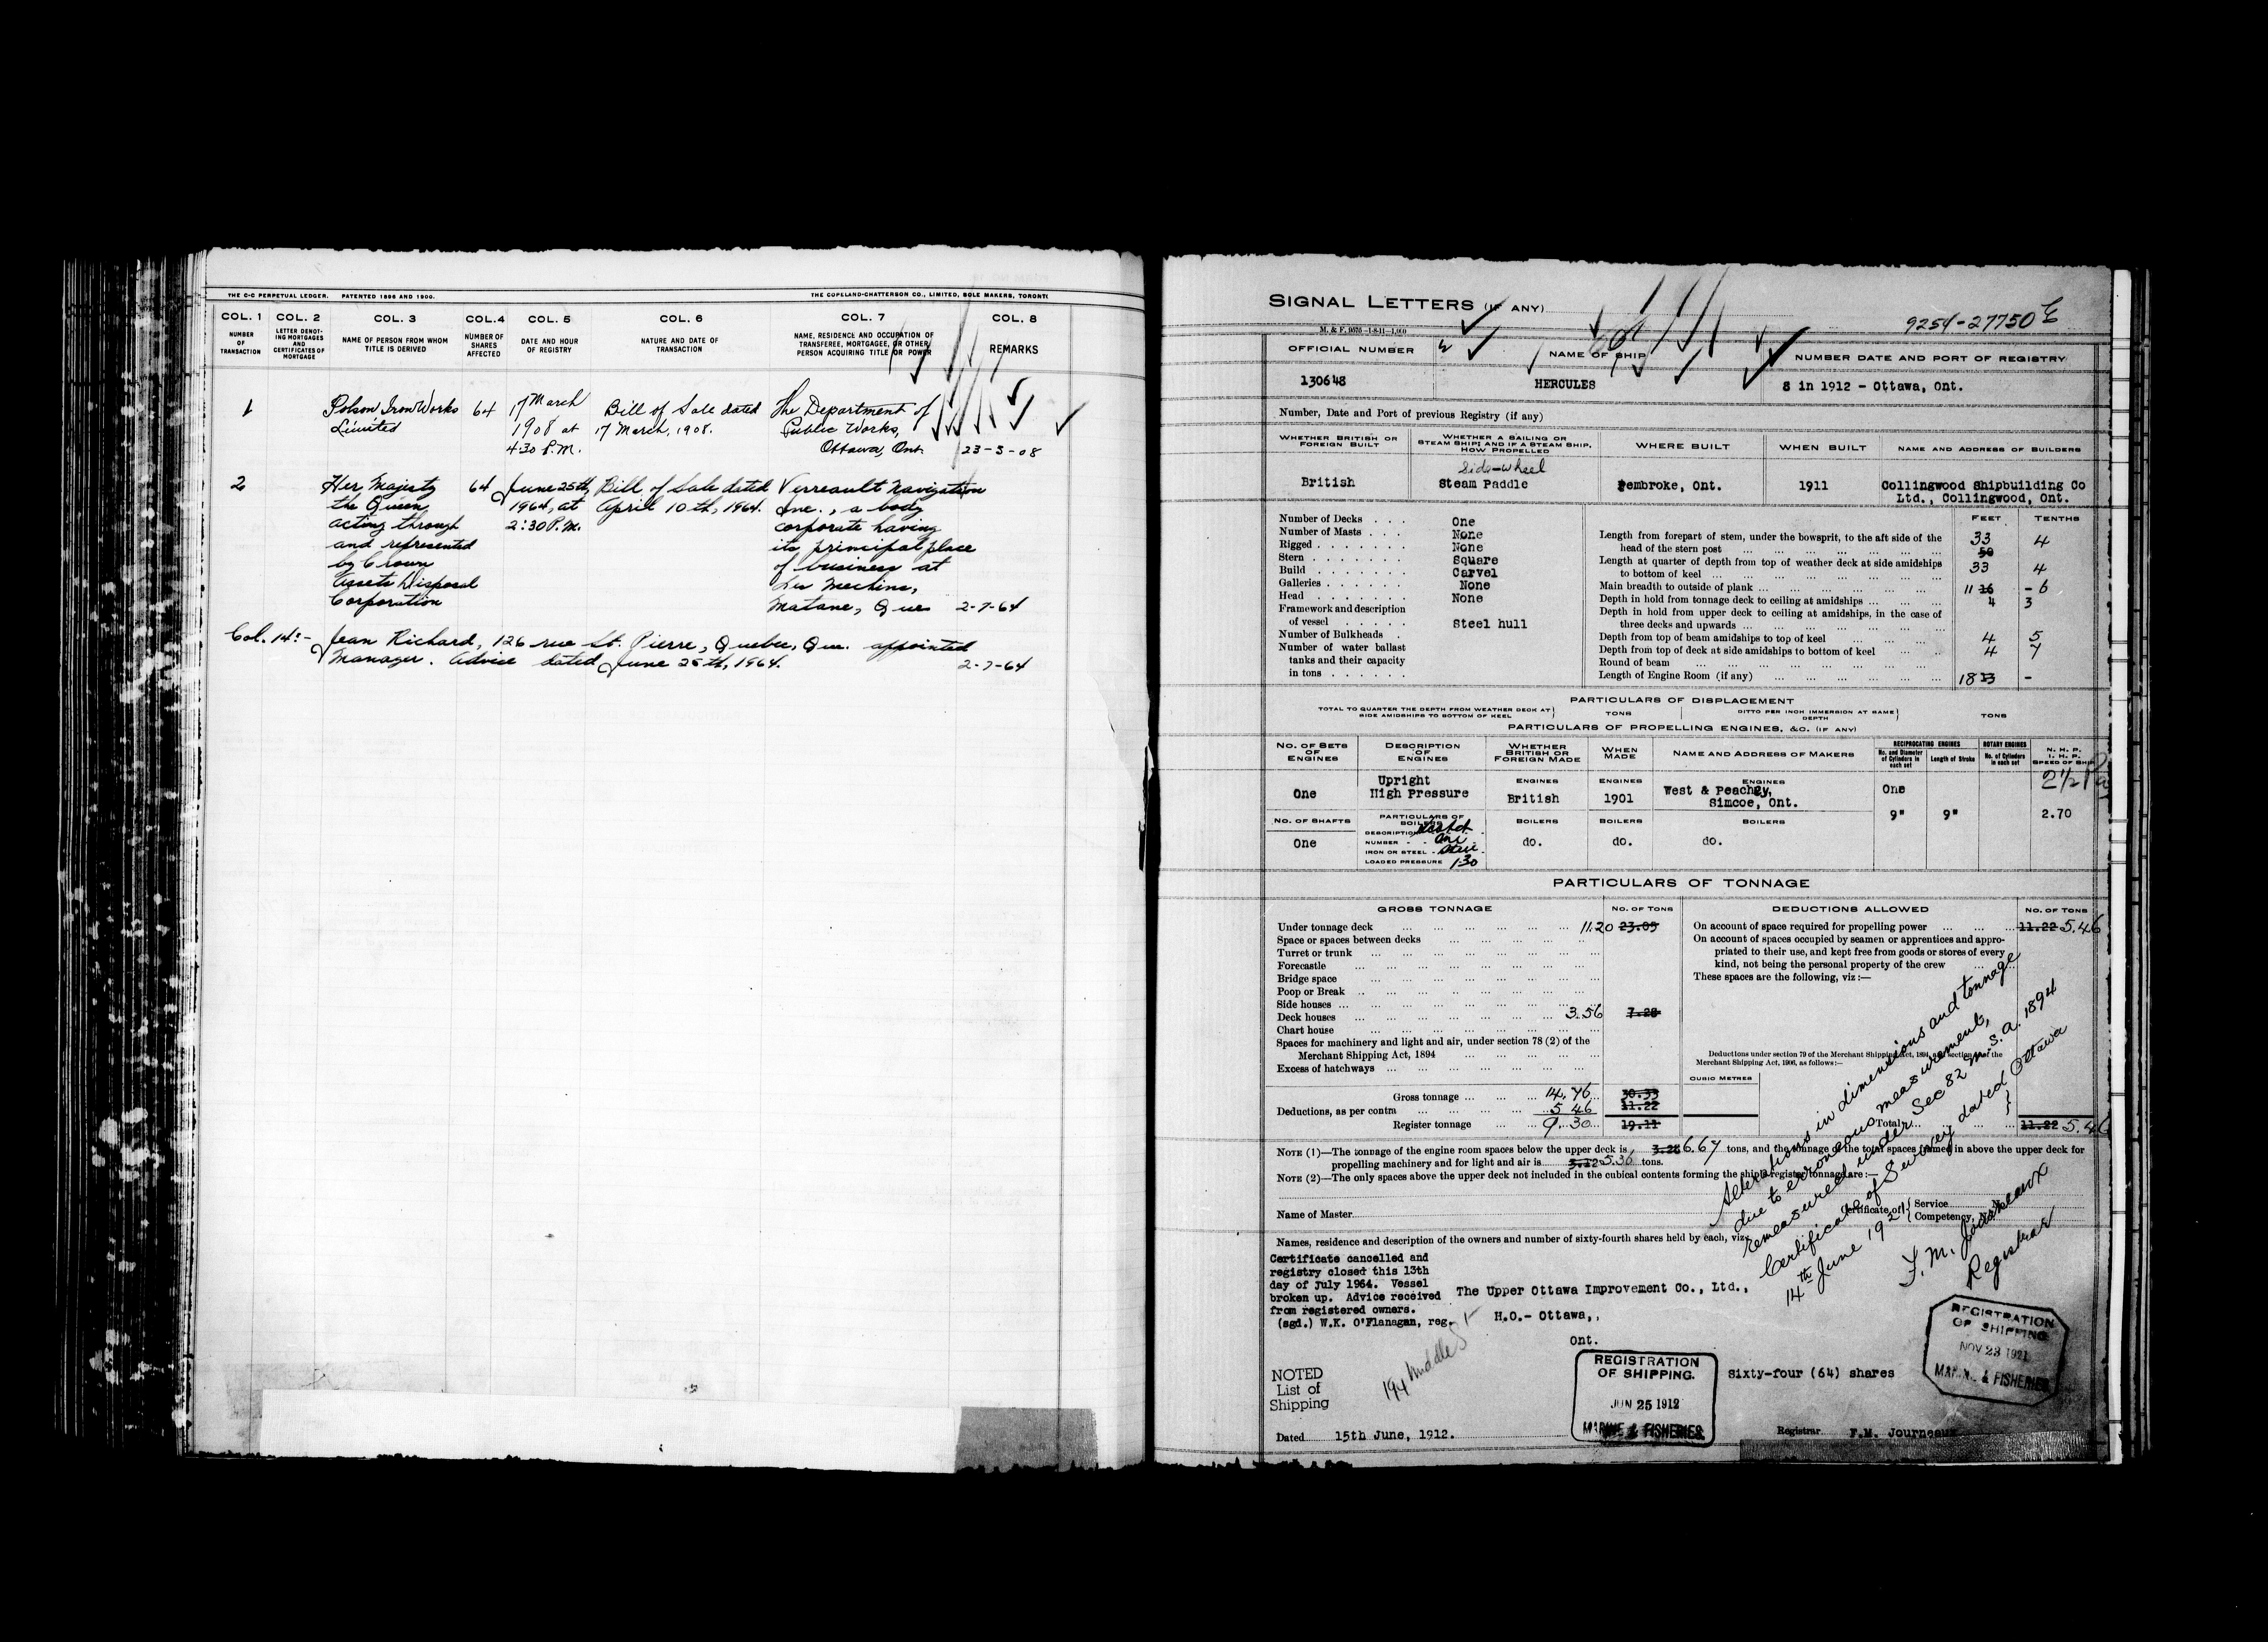 THE C-C PERPETUAL LEDGER. PATENTED 1896 AND 1900. THE COPELAND-CHATTERSON CO., LIMITED, SOLE MAKERS, TORONTO
COL. 1 COL. 2 COL. 3 COL. 4 COL. 5 COL. 6 COL. 7 COL. 8
NUMBER OF TRANSACTION
LETTER DENOTING MORTGAGES AND CERTIFICATES OF MORTGAGE
NAME OF PERSON FROM WHOM TITLE IS DERIVED
NUMBER OF SHARES AFFECTED
DATE AND HOUR OF REGISTRY
NATURE AND DATE OF TRANSACTION
NAME, RESIDENCE AND OCCUPATION OF TRANSFEREE, MORTGAGEE, OR OTHER PERSON ACQUIRING TITLE OR POWER
REMARKS
1 Polson Iron Works 64 17 March Bill of Sale dated The Department of
Limited 1908 at 17 March, 1908. Public Works,
4.30 P.M. Ottawa, Ont. 23-3-08
2 Her Majesty 64 June 25th, Bill of Sale dated Verreault Navigation
the Queen 1964, at April 10th, 1964. Inc., a body
acting through 2:30 P.M. corporate having
and represented its principal place
by Crown of business at
Assets Disposal Les Mechins,
Corporation Matane, Que 2-7-64
Col. 14:- Jean Richard, 126 rue St. Pierre, Quebec, Que. appointed
Manager. Advice dated June 25th, 1964. 2-7-64
SIGNAL LETTERS (IF ANY)
9254-27750 E
M. & F. 9576-1-8-11-1,000
OFFICIAL NUMBER NAME OF SHIP NUMBER DATE AND PORT OF REGISTRY
130648 HERCULES 8 in 1912 - Ottawa, Ont.
Number, Date and Port of previous Registry (if any)
WHETHER BRITISH OR FOREIGN BUILT
WHETHER A SAILING OR STEAM SHIP; AND IF A STEAM SHIP, HOW PROPELLED
WHERE BUILT WHEN BUILT NAME AND ADDRESS OF BUILDERS
Side-wheel
British Steam Paddle Pembroke, Ont. 1911 Collingwood Shipbuilding Co
Ltd., Collingwood, Ont.
Number of Decks One
Number of Masts None
Rigged None
Stern Square
Build Carvel
Galleries None
Head None
Framework and description
of vessel Steel hull
Number of Bulkheads
Number of water ballast
tanks and their capacity
in tons
FEET TENTHS
Length from forepart of stem, under the bowsprit, to the aft side of the
head of the stern post 33 50 4
Length at quarter of depth from top of weather deck at side amidships
to bottom of keel 33 4
Main breadth to outside of plank 11 16 - 6
Depth in hold from tonnage deck to ceiling at amidships 4 3
Depth in hold from upper deck to ceiling at amidships, in the case of
three decks and upwards
Depth from top of beam amidships to top of keel 4 5
Depth from top of deck at side amidships to bottom of keel 4 7
Round of beam
Length of Engine Room (if any) 18 13 -
PARTICULARS OF DISPLACEMENT
TOTAL TO QUARTER THE DEPTH FROM WEATHER DECK AT SIDE AMIDSHIPS TO BOTTOM OF KEEL TONS DITTO PER INCH IMMERSION AT SAME DEPTH TONS
PARTICULARS OF PROPELLING ENGINES, &C. (IF ANY)
NO. OF SETS OF ENGINES
DESCRIPTION OF ENGINES
WHETHER BRITISH OR FOREIGN MADE
WHEN MADE
NAME AND ADDRESS OF MAKERS
RECIPROCATING ENGINES
No. and Diameter of Cylinders in each set
Length of Stroke
ROTARY ENGINES
No. of Cylinders in each set
N. H. P. I. H. P. SPEED OF SHIP
Upright ENGINES ENGINES ENGINES 2 1/2
One High Pressure British 1901 West & Peachey, One
Simcoe, Ont.
9" 9" 2.70
NO. OF SHAFTS PARTICULARS OF BOILERS BOILERS BOILERS BOILERS
DESCRIPTION
One NUMBER One do. do. do.
IRON OR STEEL Steel
LOADED PRESSURE 130
PARTICULARS OF TONNAGE
GROSS TONNAGE NO. OF TONS DEDUCTIONS ALLOWED NO. OF TONS
Under tonnage deck 11.20 23.05
Space or spaces between decks
Turret or trunk
Forecastle
Bridge space
Poop or Break
Side houses
Deck houses 3.56 7.28
Chart house
Spaces for machinery and light and air, under section 78 (2) of the
Merchant Shipping Act, 1894
Excess of hatchways
Gross tonnage 14.76 30.33
Deductions, as per contra 5.46 11.22
Register tonnage 9.30 19.11
On account of space required for propelling power 11.22 5.46
On account of spaces occupied by seamen or apprentices and appro-
priated to their use, and kept free from goods or stores of every
kind, not being the personal property of the crew
These spaces are the following, viz:—
Deductions under section 79 of the Merchant Shipping Act, 1894, and section of the
Merchant Shipping Act, 1906, as follows:—
CUBIC METRES
Total 11.22 5.46
NOTE (1)—The tonnage of the engine room spaces below the upper deck is 3.28 6.67 tons, and the tonnage of the total spaces framed in above the upper deck for
propelling machinery and for light and air is 5.36 tons.
NOTE (2)—The only spaces above the upper deck not included in the cubical contents forming the ship's register tonnage are:—
Name of Master Certificate of Service Competency No.
Names, residence and description of the owners and number of sixty-fourth shares held by each, viz
Alterations in dimensions and tonnage
due to erroneous measurement,
remeasured under Sec 82 M.S.A. 1894
Certificate of Survey dated Ottawa
14th June 1921
F. M. Journeaux
Registrar
Certificate cancelled and
registry closed this 13th
day of July 1964. Vessel
broken up. Advice received
from registered owners.
(sgd.) W.K. O'Flanagan, reg.
The Upper Ottawa Improvement Co., Ltd.,
H.O.- Ottawa,,
Ont.
Sixty-four (64) shares
NOTED
List of
Shipping
REGISTRATION
OF SHIPPING.
JUN 25 1912
MARINE & FISHERIES
REGISTRATION
OF SHIPPING
NOV 23 1921
MARINE & FISHERIES
Dated 15th June, 1912. Registrar F.M. Journeaux